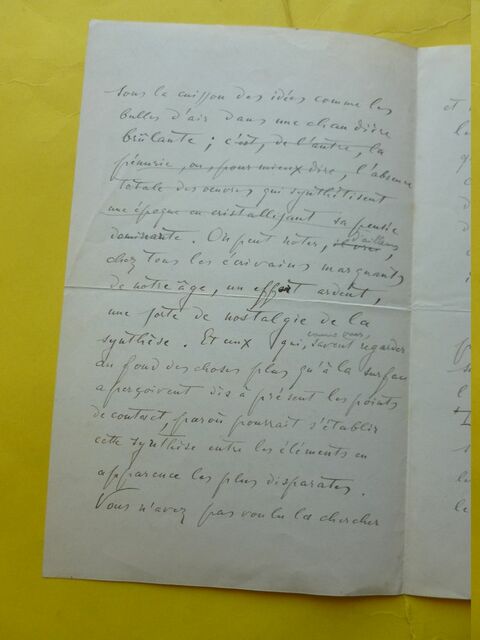 sous la cuisson des idées comme les
bulles d'air dans une chaudière
brûlante ; c'est, de l'autre, la
pénurie, ou, pour mieux dire, l'absence
totale des œuvres qui synthétisent
une époque en cristallisant sa pensée
dominante. On peut noter, d'ailleurs,
chez tous les écrivains marquants
de notre âge, un effort ardent,
une sorte de nostalgie de la
synthèse. Et ceux qui, comme vous, savent regarder
au fond des choses plus qu'à la surface
aperçoivent dès à présent les points
de contact, par où pourrait s'établir
cette synthèse entre les éléments en
apparence les plus disparates.
Vous n'avez pas voulu la chercher
et